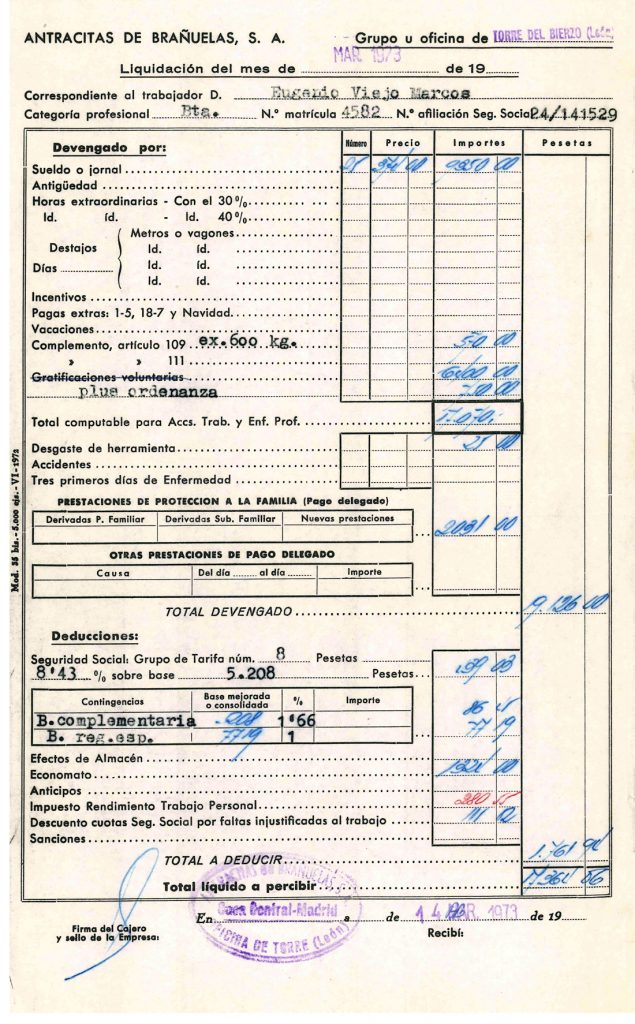 ANTRACITAS DE BRAÑUELAS, S. A. Grupo u oficina de TORRE DEL BIERZO (León)
MAR. 1973
Liquidación del mes de de 19
Correspondiente al trabajador D. Eugenio Viejo Marcos
Categoría profesional Bta. N.º matrícula 4582 N.º afiliación Seg. Social 24/141529
Devengado por: Número Precio Importes Pesetas
Sueldo o jornal
Antigüedad
Horas extraordinarias - Con el 30%
Id. íd. - Id. 40%
Metros o vagones:
Destajos Id. íd.
Días Id. íd.
Id. íd.
Incentivos
Pagas extras: 1-5, 18-7 y Navidad.
Vacaciones
Complemento, artículo 109 ex.600 kg.
» » 111
Gratificaciones voluntarias
plus ordenanza
Total computable para Accs. Trab. y Enf. Prof.
Desgaste de herramienta 25 00
Accidentes
Tres primeros días de Enfermedad
PRESTACIONES DE PROTECCION A LA FAMILIA (Pago delegado)
Derivadas P. Familiar Derivadas Sub. Familiar Nuevas prestaciones
2031 00
OTRAS PRESTACIONES DE PAGO DELEGADO
Causa Del día al día Importe
TOTAL DEVENGADO 9.126 00
Deducciones:
Seguridad Social: Grupo de Tarifa núm. 8 Pesetas
8'43 % sobre base 5.208 Pesetas
Contingencias Base mejorada o consolidada % Importe
B.complementaria 1'66
B. reg.esp. 7719 1 77 19
Efectos de Almacén
Economato
Anticipos
Impuesto Rendimiento Trabajo Personal
Descuento cuotas Seg. Social por faltas injustificadas al trabajo
Sanciones
TOTAL A DEDUCIR
Total líquido a percibir
ANTRACITAS DE BRAÑUELAS, S. A.
Casa Central-Madrid
OFICINA DE TORRE (León)
En a de 14 MAR. 1973 de 19
Firma del Cajero
y sello de la Empresa:
Recibí:
Mod. 35 bis.-5.000 ejs.-VI-1972